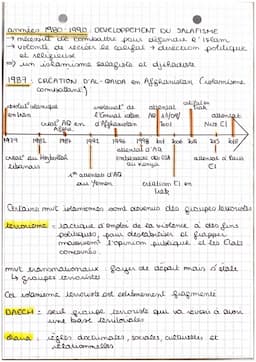 années 1980-1990 : DEVELOPPEMENT DU SALAFISME
→ nécessité de combattre pour défendre l'Islam
→ volonté de recréer le califat → direction politique
et religieuse
⇒ un islamisme salafiste et djihadiste
1987 : CREATION D'AL-QAIDA en Afghanistan (islamisme
combattant)
révolut° islamique
en Iran
creat° AQ en
Afgha.
attentat
AQ 11/09/
2001
création
Nus CI
1979 1982 1987 1992 1996 1998 2001 2013 2015
creat° du Hezbollah
libanais
1er attentat d'AQ
au Yemen
attentat d'AQ
ambassade des USA
au Kenya
création CI en
Irak
attentat à Paris
CI
Certains mvt islamistes sont devenus des groupes terroristes
terrorisme : tactique d'emploi de la violence à des fins
politiques, pour déstabiliser et frapper
massivement l'opinion publique et les Etats
concernés.
mvt transnationaux : foyer de départ mais ≠ état
↳ groupes terroristes
Cet islamisme terroriste est extrêmement fragmenté
DAECH : seul groupe terroriste qui va réussir à avoir
une base territoriale
Charia : règles doctrinales, sociales, culturelles et
relationnelles